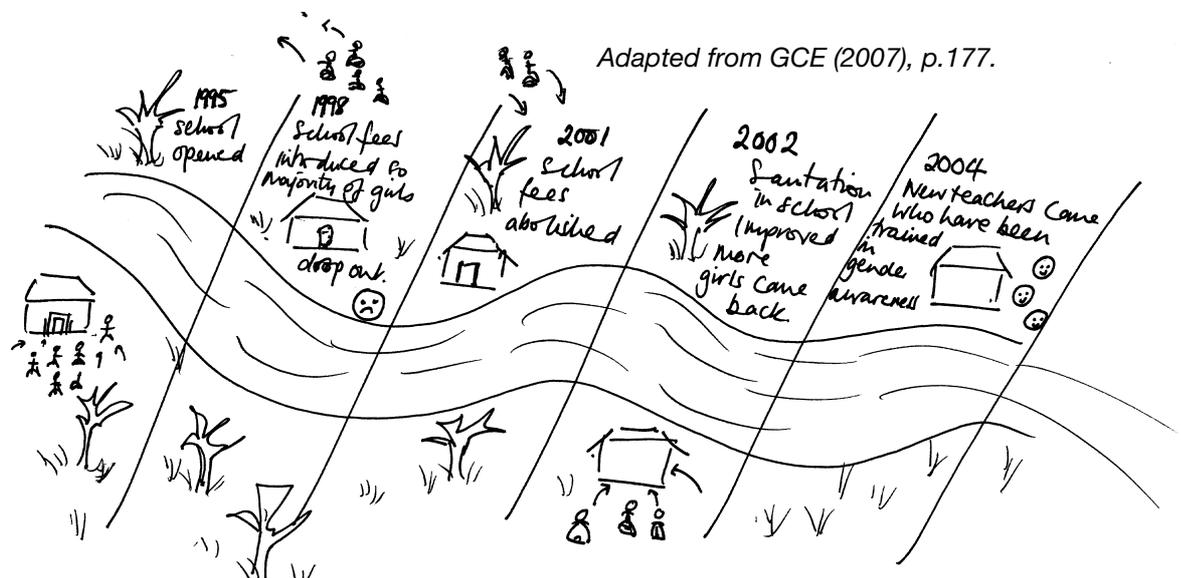 Adapted from GCE (2007), p.177.
1995
school
opened
1998
School fees
introduced so
majority of girls
drop out.
2001
School
fees
abolished
2002
Sanitation
in school
improved
more
girls came
back
2004
New teachers came
who have been
trained
in
gender
awareness